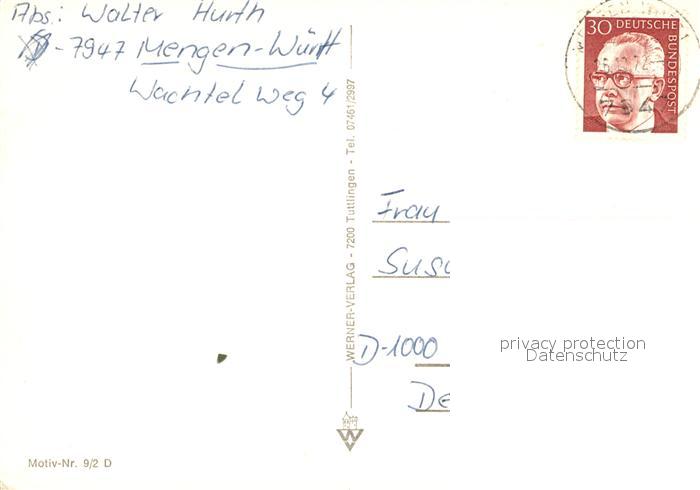 Abs: Walter Hurth
D-7947 Mengen-Württ
Wachtel Weg 4
30 DEUTSCHE BUNDESPOST
WERNER-VERLAG - 7200 Tuttlingen - Tel. 07461/2997
Frau
D-1000
privacy protection
Datenschutz
W
Motiv-Nr. 9/2 D